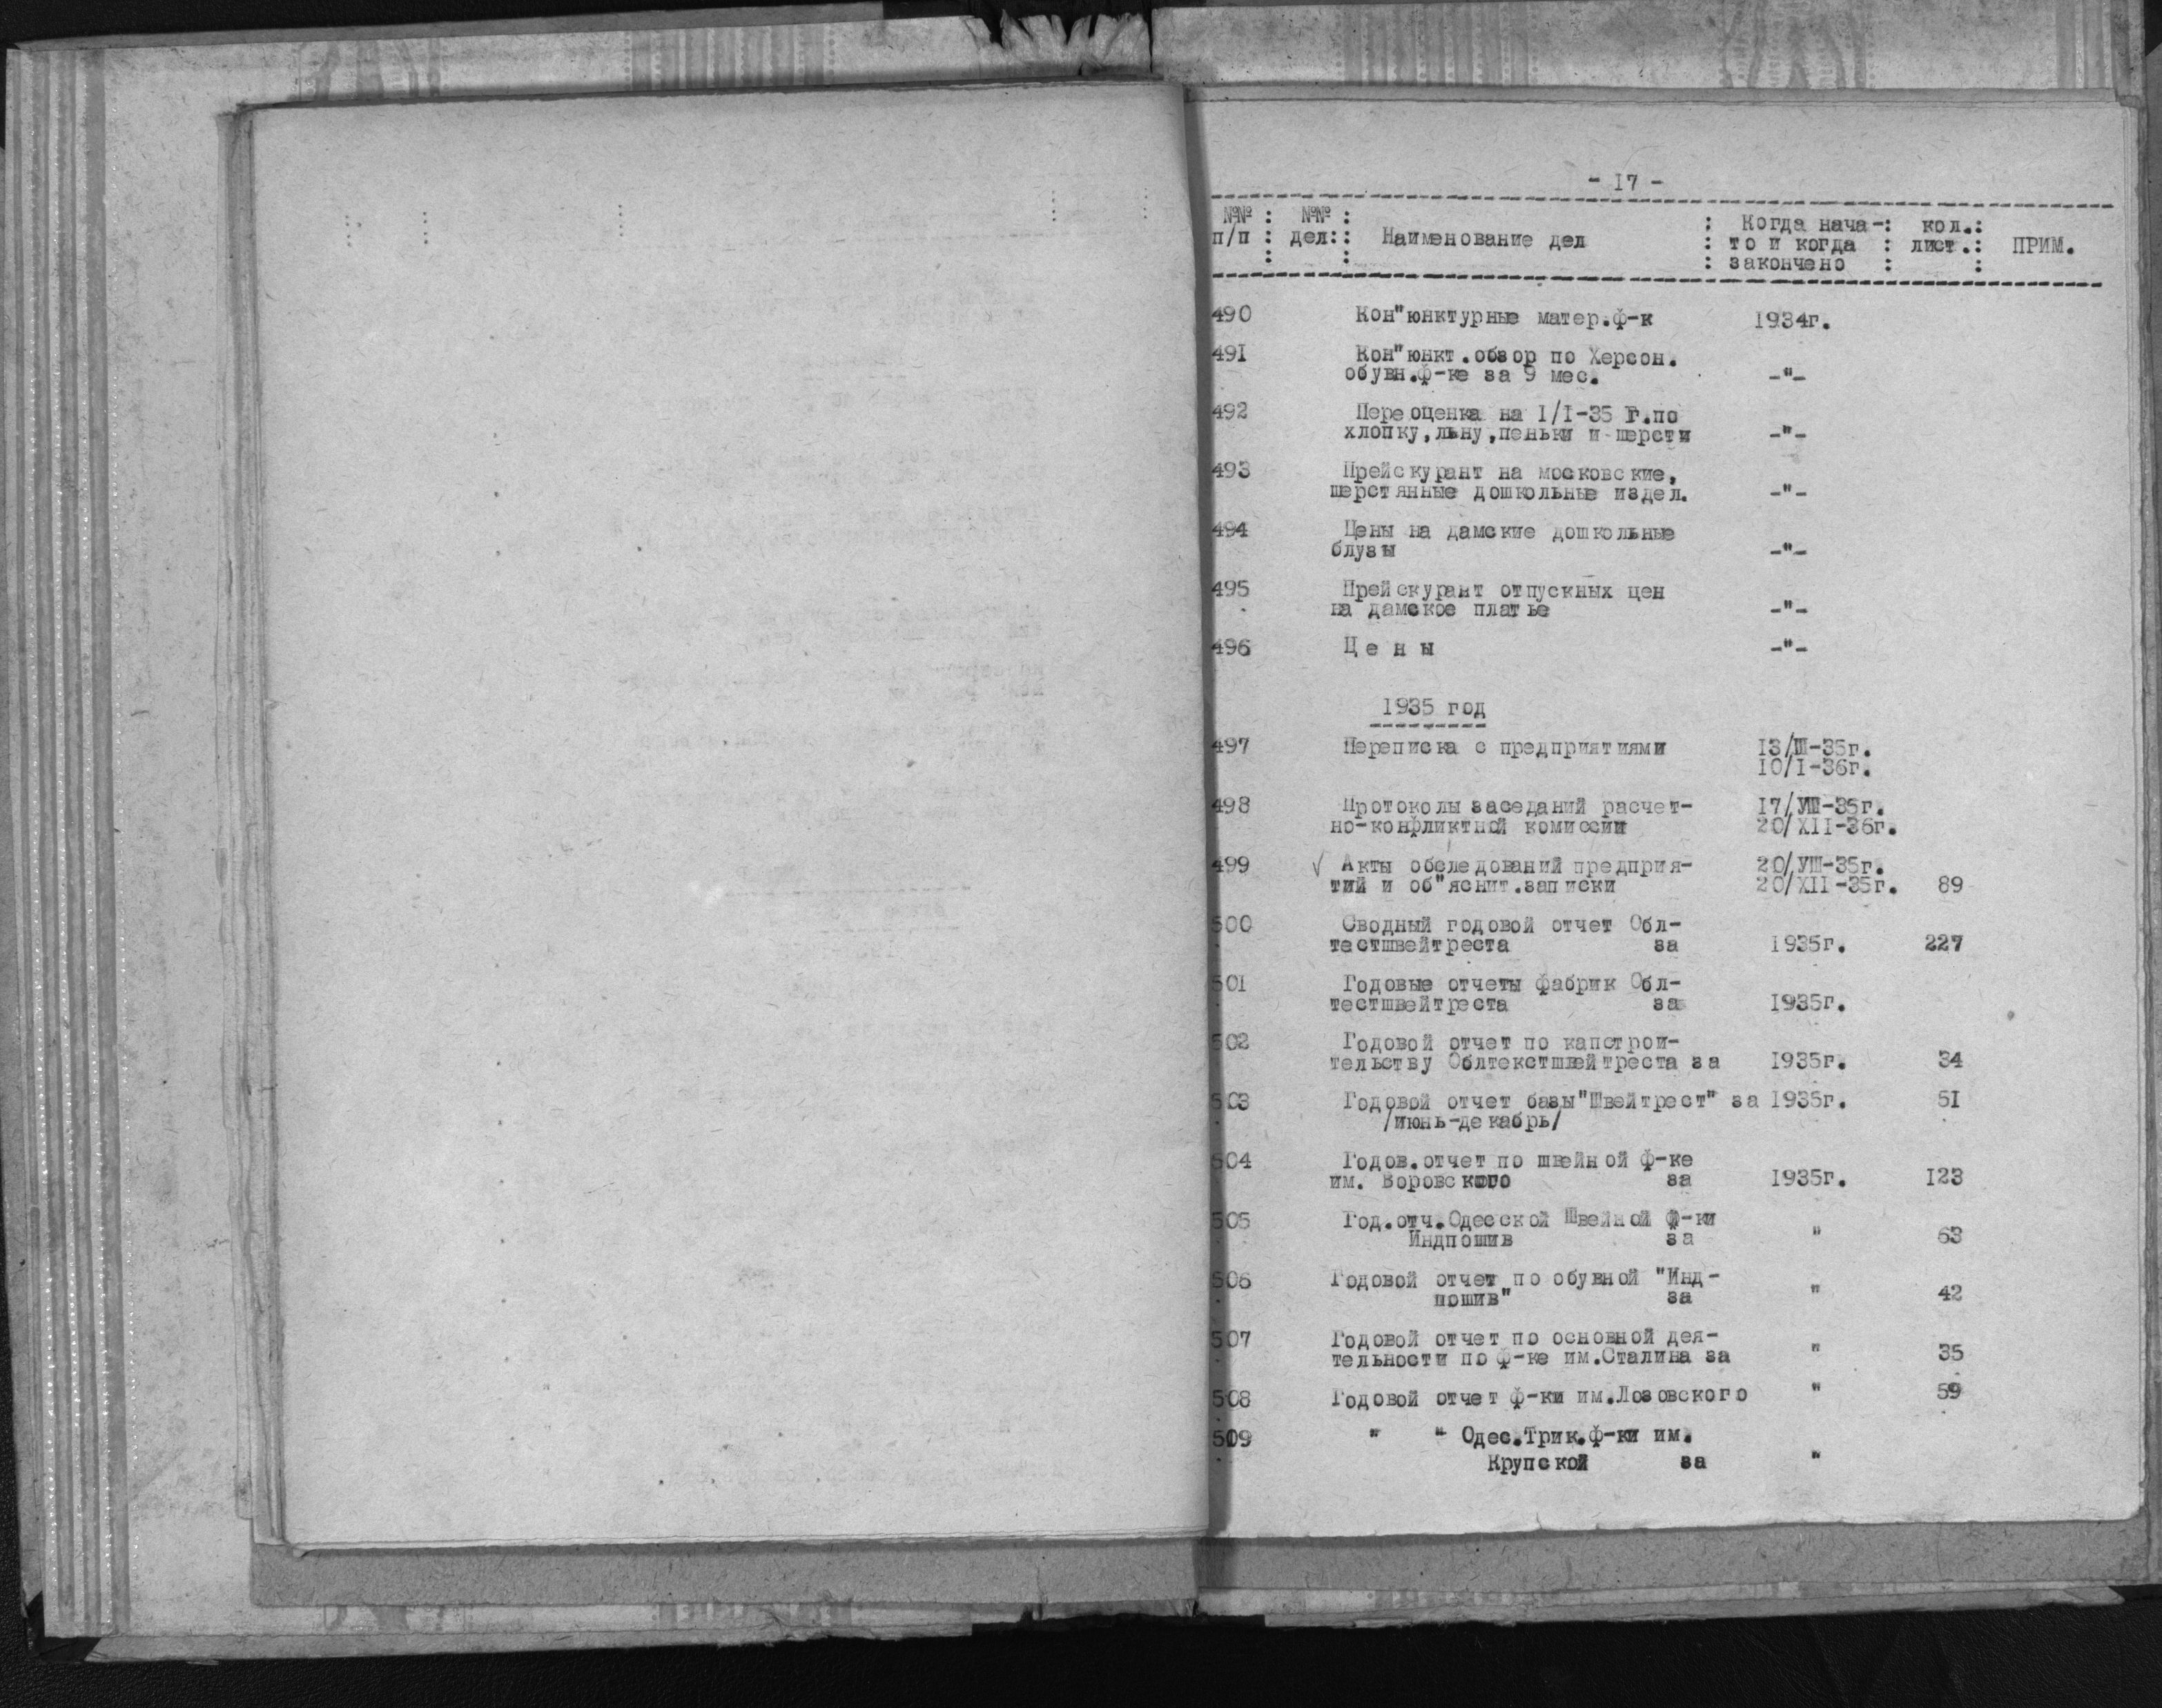 - 17 -
№№ : №№ : : Когда нача-: кол.:
п/п : дел:: Наименование дел : то и когда : лист.: ПРИМ.
: : : закончено : :
490 Кон"юнктурные матер.ф-к 1934г.
491 Кон"юнкт.обзор по Херсон.
обувн.ф-ке за 9 мес. -"-
492 Переоценка на 1/I-35 г.по
хлопку,льну,пеньки и шерсти -"-
493 Прейскурант на московские,
шерстянные дошкольные издел. -"-
494 Цены на дамские дошкольные
блузы -"-
495 Прейскурант отпускных цен
на дамское платье -"-
496 Ц е н ы -"-
1935 год
497 Переписка с предприятиями 13/Ш-35г.
10/I-36г.
498 Протоколы заседаний расчет- 17/УШ-35г.
но-конфликтной комиссии 20/XII-36г.
499 √ Акты обследований предприя- 20/УШ-35г.
тий и об"яснит.записки 20/XII-35г. 89
500 Сводный годовой отчет Обл-
тестшвейтреста за 1935г. 227
501 Годовые отчеты фабрик Обл-
тестшвейтреста за 1935г.
502 Годовой отчет по капстрои-
тельству Облтекстшвейтреста за 1935г. 34
503 Годовой отчет базы"Швейтрест" за 1935г. 51
/июнь-декабрь/
504 Годов.отчет по швейной ф-ке
им. Воровского за 1935г. 123
505 Год.отч.Одесской Швейной ф-ки
Индпошив за " 63
506 Годовой отчет по обувной "Инд-
пошив" за " 42
507 Годовой отчет по основной дея-
тельности по ф-ке им.Сталина за " 35
508 Годовой отчет ф-ки им.Лозовского " 59
509 " " Одес.Трик.ф-ки им.
Крупской за "